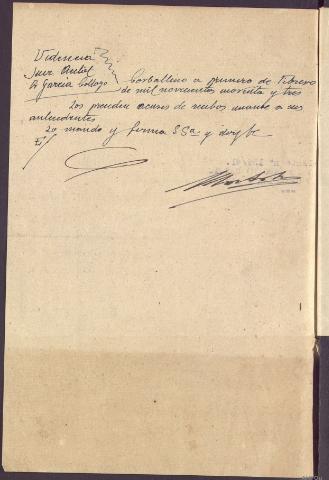 Providencia
Juez Actal
Sr Garcia Collazo
Carballino a primero de Febrero
de mil novecientos noventa y tres
Los pceden acuses de recibos unanse a sus
antecedentes
Lo mando y firma SSª y doy fe